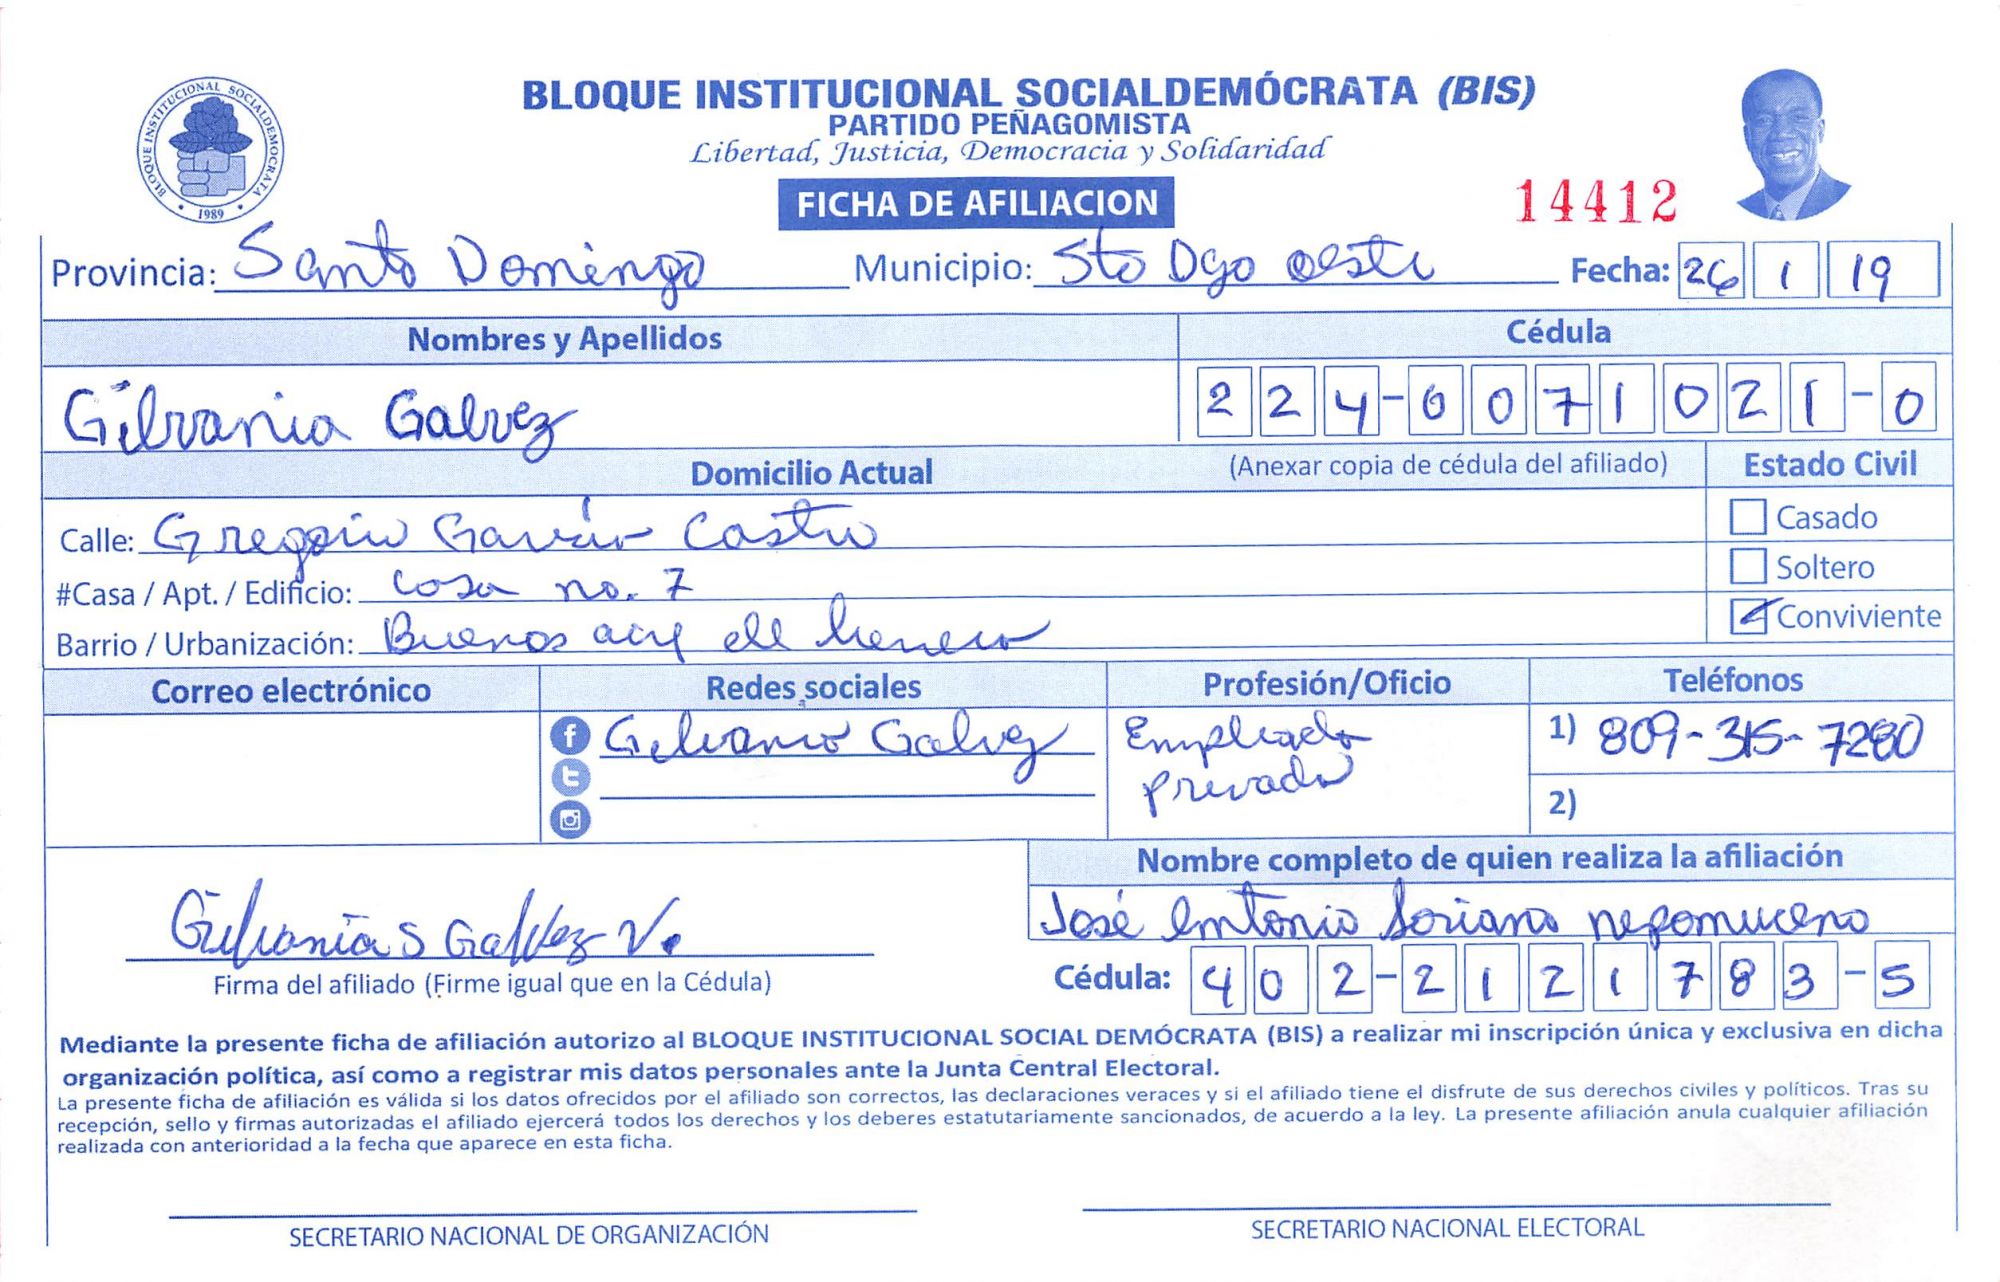 BLOQUE INSTITUCIONAL SOCIALDEMOCRATA
1989
BLOQUE INSTITUCIONAL SOCIALDEMÓCRATA (BIS)
PARTIDO PEÑAGOMISTA
Libertad, Justicia, Democracia y Solidaridad
FICHA DE AFILIACION
14412
Provincia: Santo Domingo Municipio: Sto Dgo oeste Fecha: 26 1 19
Nombres y Apellidos Cédula
Gilvania Galvez 224-0071021-0
Domicilio Actual (Anexar copia de cédula del afiliado) Estado Civil
Calle: Gregorio García Castro Casado
#Casa / Apt. / Edificio: Casa no. 7 Soltero
Barrio / Urbanización: Buenos Conviviente
Correo electrónico Redes sociales Profesión/Oficio Teléfonos
Gilvania Galvez Empleado 1) 809-315-7280
privado
2)
Nombre completo de quien realiza la afiliación
José Antonio Soriano nepomuceno
Gilvania S Galvez V.
Firma del afiliado (Firme igual que en la Cédula) Cédula: 402-2121783-5
Mediante la presente ficha de afiliación autorizo al BLOQUE INSTITUCIONAL SOCIAL DEMÓCRATA (BIS) a realizar mi inscripción única y exclusiva en dicha
organización política, así como a registrar mis datos personales ante la Junta Central Electoral.
La presente ficha de afiliación es válida si los datos ofrecidos por el afiliado son correctos, las declaraciones veraces y si el afiliado tiene el disfrute de sus derechos civiles y políticos. Tras su
recepción, sello y firmas autorizadas el afiliado ejercerá todos los derechos y los deberes estatutariamente sancionados, de acuerdo a la ley. La presente afiliación anula cualquier afiliación
realizada con anterioridad a la fecha que aparece en esta ficha.
SECRETARIO NACIONAL DE ORGANIZACIÓN SECRETARIO NACIONAL ELECTORAL